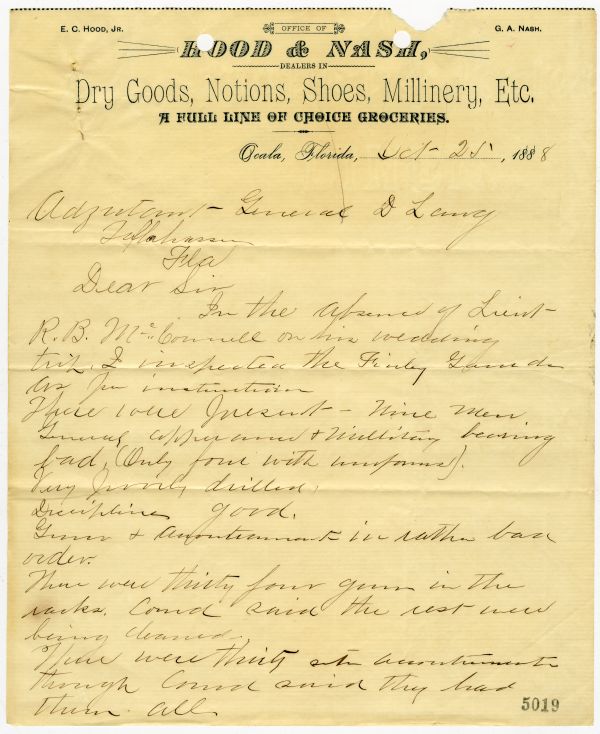 E. C. HOOD, JR.
OFFICE OF
G. A. NASH.
HOOD & NASH,
DEALERS IN
Dry Goods, Notions, Shoes, Millinery, Etc.
A FULL LINE OF CHOICE GROCERIES.
Ocala, Florida, Oct 25, 1888
Adjutant General D Lang
Tallahassee
Fla
Dear Sir
In the absence of Lieut-
R. B. McConnell on his wedding
trip, I inspected the Finley Guards
as per instructions
There were present - Nine Men
General appearance & Military bearing
bad, (Only four with uniforms).
Very poorly drilled,
Discipline good.
Guns & Accoutrements in rather bad
order.
There were thirty four guns in the
racks. Comd said the rest were
being cleaned.
There were thirty accoutrements
though Comd said they had
them all
5019